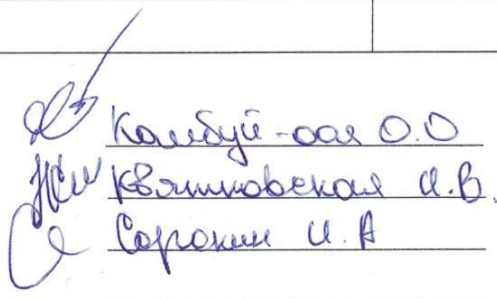 Камбуй-оол О.О
Квятковская И.В.
Сорокин И.А